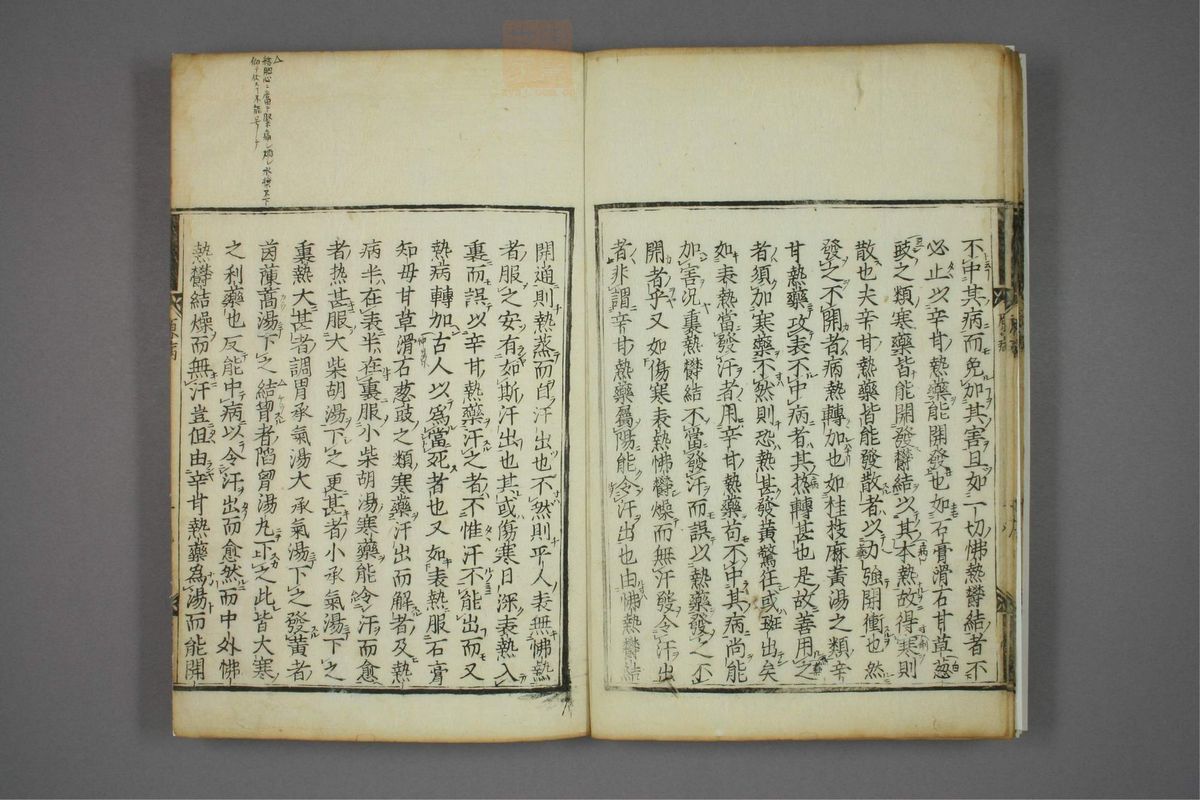 不中其病而免加其害且如一切怫熱鬱結者不
必止以辛甘熱藥能開發也如石膏滑石甘草葱
豉之類寒藥皆能開發鬱結以其本熱故得寒則
散也夫辛甘熱藥皆能發散者以力強開衝也然
發之不開者病熱轉加也如桂枝麻黃湯之類辛
甘熱藥攻表不中病者其热轉甚也是故善用之
者須加寒藥不然則恐熱甚發黃驚狂或斑出矣
如表熱當發汗者用辛甘熱藥苟不中其病尚能
加害況裏熱鬱結不當發汗而誤以熱藥發之不
開者乎又如傷寒表熱怫鬱燥而無汗發令汗出
者非謂辛甘熱藥爲陽能令汗出也由怫熱鬱結
開通則熱蒸而自汗出也不然則平人表無怫熱
者服之安有如斯汗出也其或傷寒日深表熱入
裏而誤以辛甘熱藥汗之者不惟汗不能出而又
熱病轉加古人以爲當死者也又如表熱服石膏
知毋甘草滑石葱豉之類寒藥汗出而解者及熱
病半在表半在裏服小柴胡湯寒藥能令汗而愈
者热甚服大柴胡湯下之更甚者小承氣湯下之
裏熱大甚者調胃承氣湯大承氣湯下之發黃者
茵蔯蒿湯下之結胷者陷胷湯丸下之此皆大寒
之利藥也反能中病以令汗出而愈然而中外怫
熱鬱結燥而無汗豈但由辛甘熱藥為湯而能開